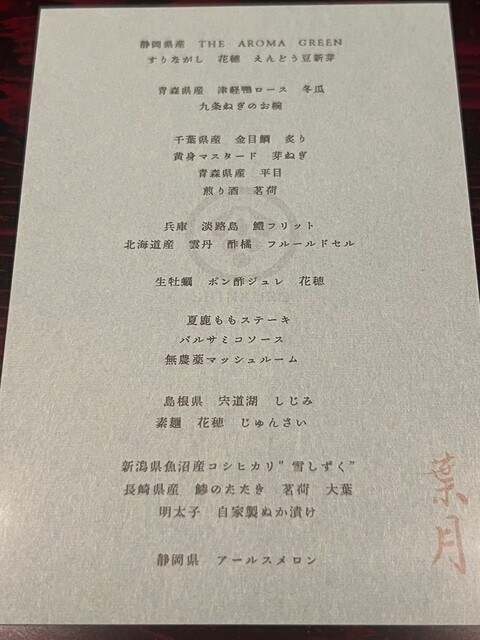 静岡県産　THE　AROMA　GREEN
すりながし　花穂　えんどう豆新芽
青森県産　津軽鴨ロース　冬瓜
九条ねぎのお椀
千葉県産　金目鯛　炙り
黄身マスタード　芽ねぎ
青森県産　平目
煎り酒　茗荷
兵庫　淡路島　鱧フリット
北海道産　雲丹　酢橘　フルールドセル
生牡蠣　ポン酢ジュレ　花穂
夏鹿ももステーキ
バルサミコソース
無農薬マッシュルーム
島根県　宍道湖　しじみ
素麺　花穂　じゅんさい
新潟県魚沼産コシヒカリ"雪しずく"
長崎県産　鯵のたたき　茗荷　大葉
明太子　自家製ぬか漬け
静岡県　アールスメロン
葉月